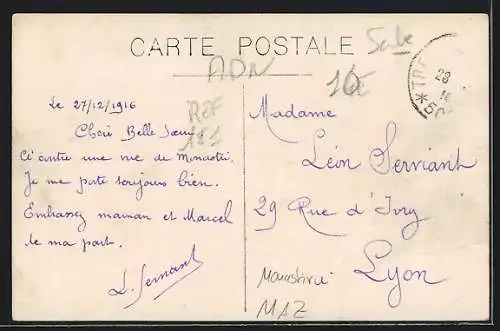 CARTE POSTALE
Serbe
ADN
16E
REF
181
TRE
28
16
Le 27/12/1916
Chère Belle Sœur
Ci contre une vue de Monastir.
Je me porte toujours bien.
Embrassez maman et Marcel
de ma part.
L. Servant
Madame
Léon Serviant
29 Rue d'Ivry
Lyon
MAZ